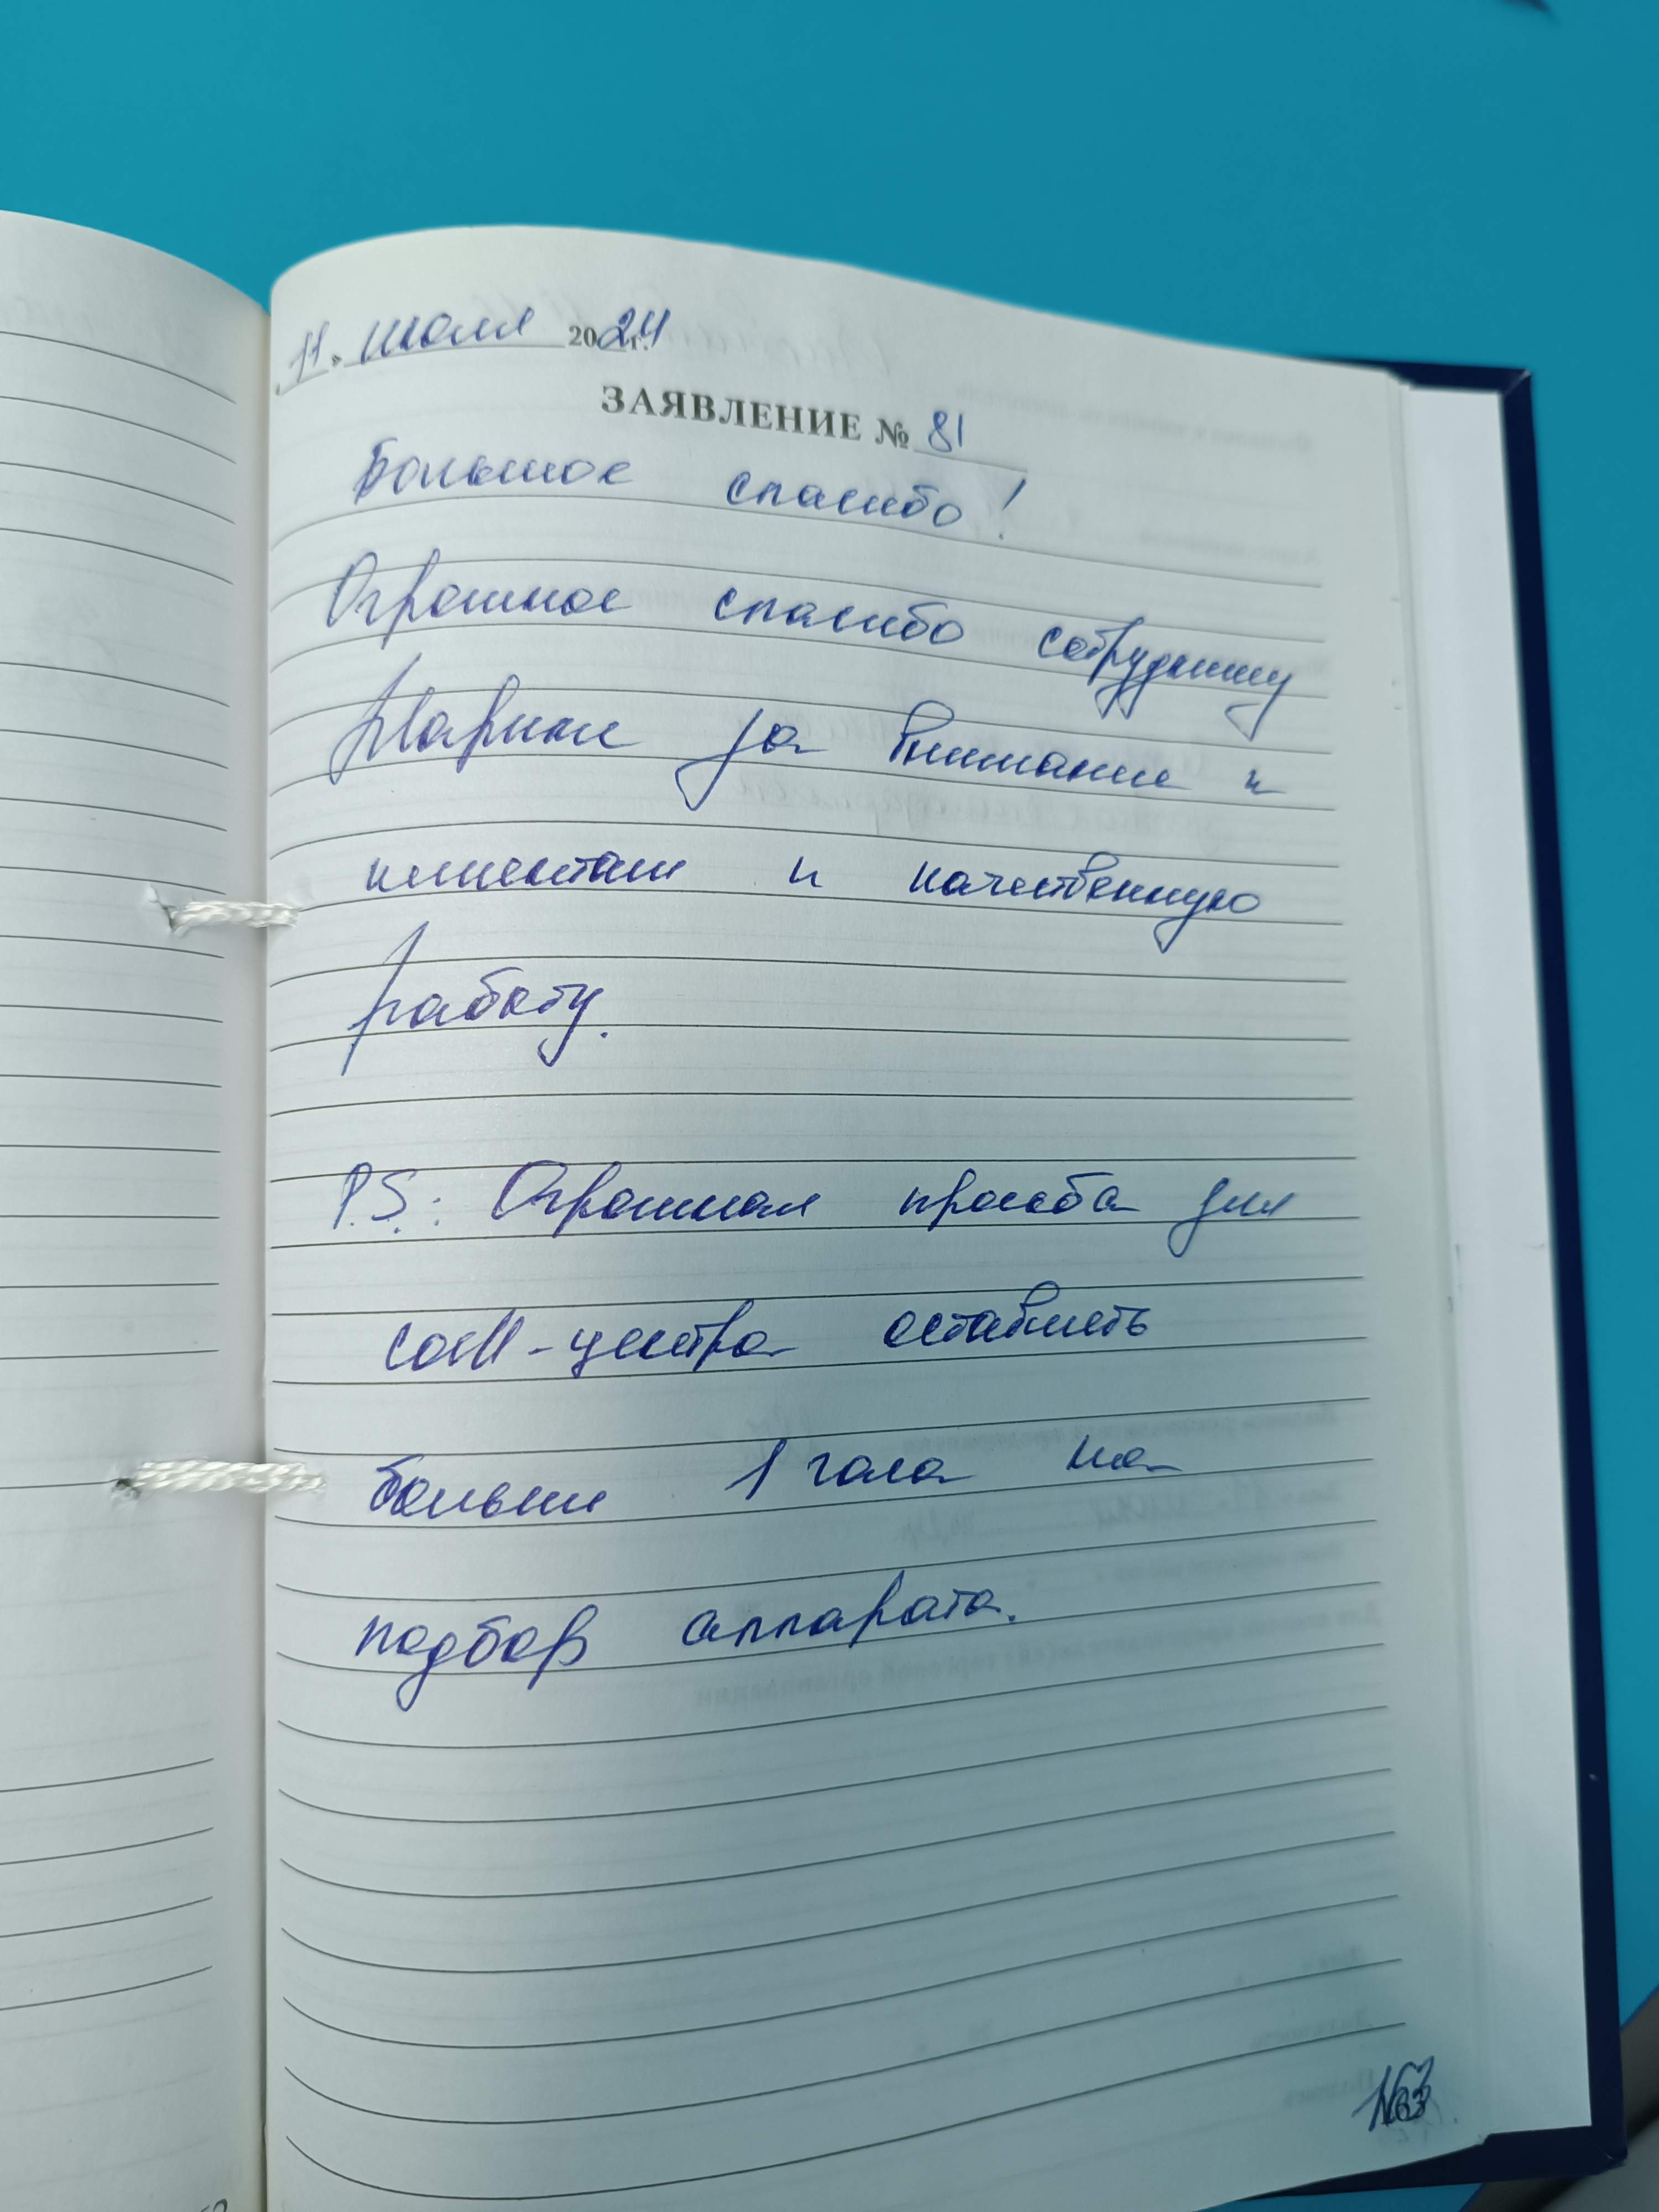 11 » июля 2024 г.
ЗАЯВЛЕНИЕ № 81
Большое спасибо!
Огромное спасибо сотруднику
Марине за внимание к
клиентам и качественную
работу.
P.S.: Огромная просьба для
call-центра оставлять
больше 1 часа на
подбор аппарата.